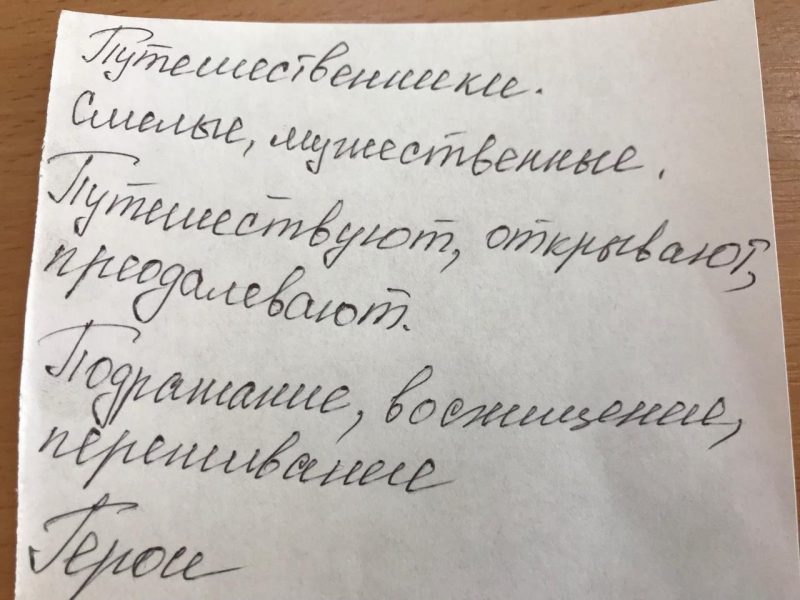 Путешественники.
Смелые, мужественные.
Путешествуют, открывают,
преодалевают.
Подражание, восхищение,
переживание
Герои